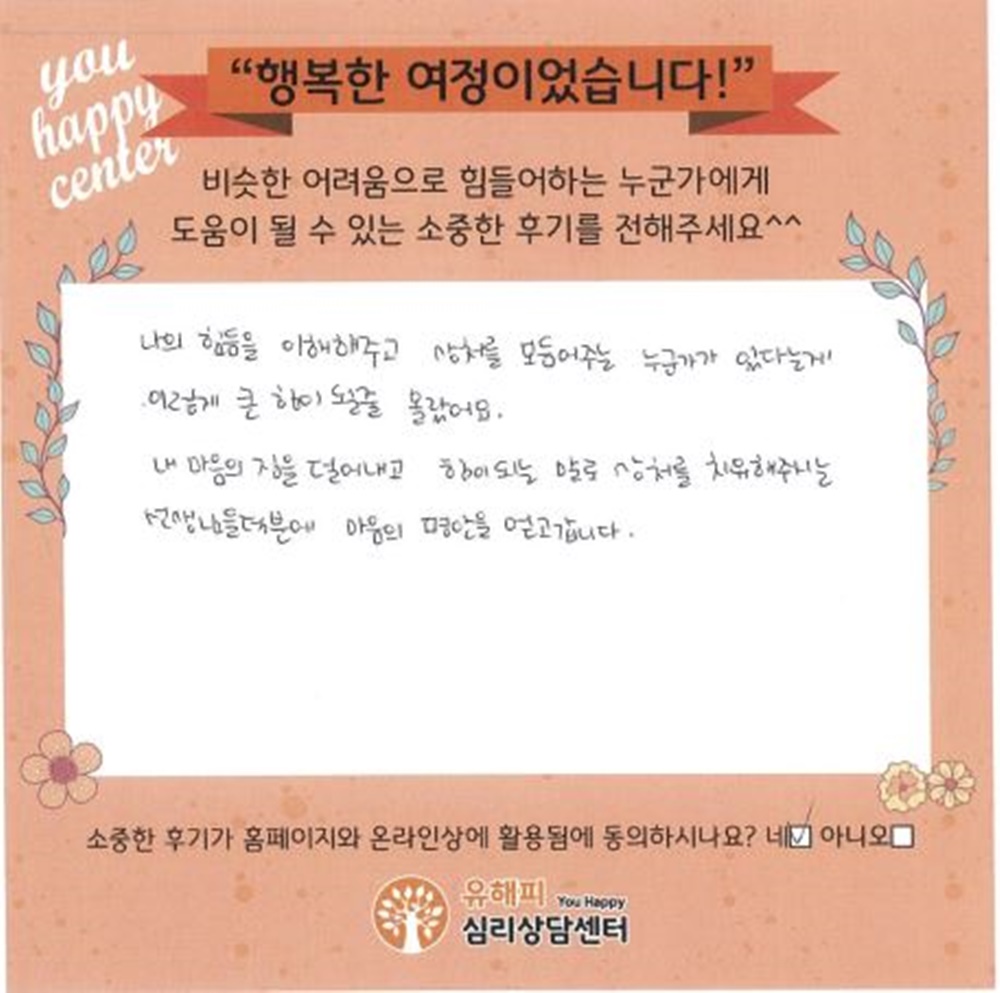 you
happy
center
“행복한 여정이었습니다!”
비슷한 어려움으로 힘들어하는 누군가에게
도움이 될 수 있는 소중한 후기를 전해주세요^^
나의 힘듬을 이해해주고 상처를 보듬어주는 누군가가 있다는게
이렇게 큰 힘이 될줄 몰랐어요.
내 마음의 짐을 덜어내고 힘이되는 말로 상처를 치유해주시는
선생님들덕분에 마음의 평안을 얻고갑니다.
소중한 후기가 홈페이지와 온라인상에 활용됨에 동의하시나요? 네☑ 아니오☐
유해피 You Happy
심리상담센터